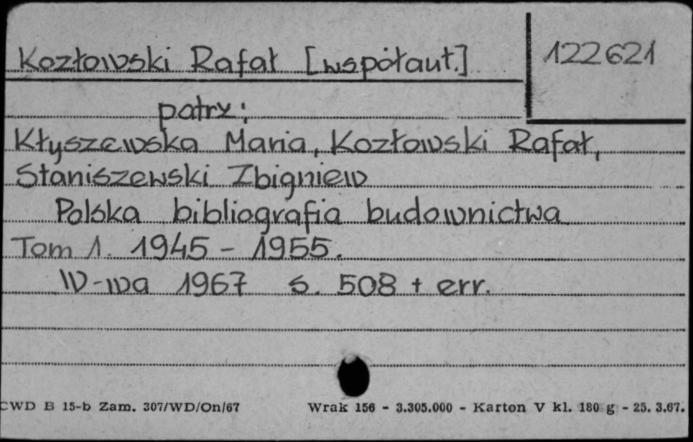 Kozłowski Rafał [współaut.]
122621
patrz:
Kłyszewska Maria, Kozłowski Rafał,
Staniszewski Zbigniew
Polska bibliografia budownictwa
Tom 1. 1945 - 1955.
W-wa 1967 s. 508 + err.
CWD B 15-b Zam. 307/WD/On/67 Wrak 156 - 3.305.000 - Karton V kl. 180 g - 25. 3.67.